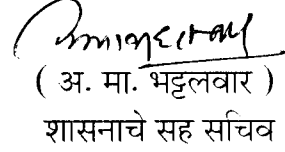 ( अ. मा. भट्टलवार )
शासनाचे सह सचिव